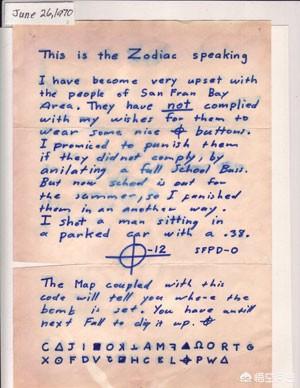 June 26, 1970
This is the Zodiac speaking
I have become very upset with
the people of San Fran Bay
Area. They have not complied
with my wishes for them to
wear some nice ⌖ buttons.
I promiced to punish them
if they did not comply, by
anilating a full School Buss.
But now school is out for
the summer, so I punished
them in an another way.
I shot a man sitting in
a parked car with a .38.
⌖-12 SFPD-0
The Map coupled with this
code will tell you where the
bomb is set. You have untill
next Fall to dig it up. ⌖
悟空问答